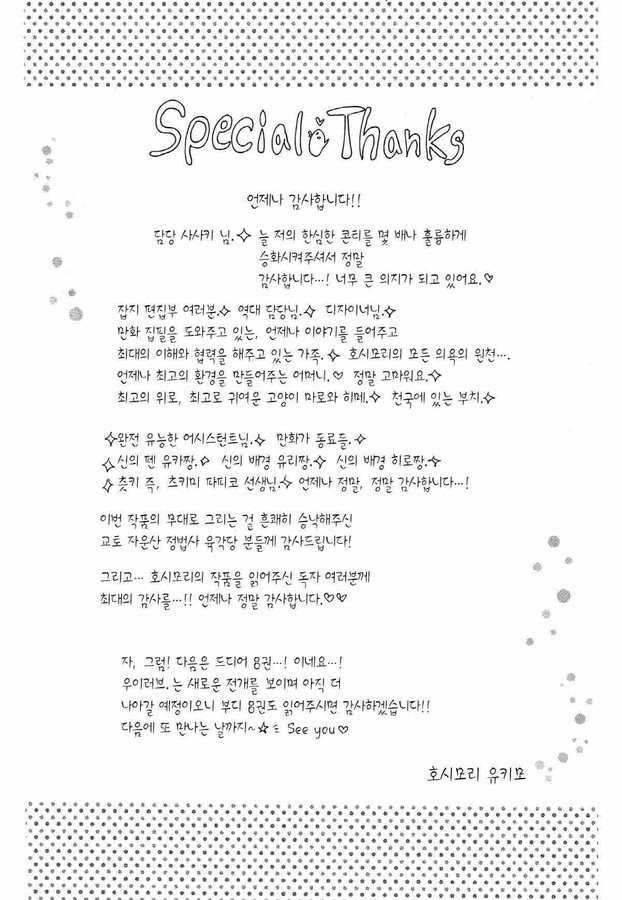 Special Thanks
언제나 감사합니다!!
담당 사사키 님.✧ 늘 저의 한심한 콘티를 몇 배나 훌륭하게
승화시켜주셔서 정말
감사합니다…! 너무 큰 의지가 되고 있어요.♡
잡지 편집부 여러분.✧ 역대 담당님.✧ 디자이너님.✧
만화 집필을 도와주고 있는, 언제나 이야기를 들어주고
최대의 이해와 협력을 해주고 있는 가족.✧ 호시모리의 모든 의욕의 원천….
언제나 최고의 환경을 만들어주는 어머니.♡ 정말 고마워요.✧
최고의 위로, 최고로 귀여운 고양이 마로와 히메.✧ 천국에 있는 부치.✧
✧완전 유능한 어시스턴트님.✧ 만화가 동료들.✧
✧신의 펜 유카짱.✧ 신의 배경 유리짱.✧ 신의 배경 히로짱.✧
✧츳키 즉, 츠키미 파피코 선생님.✧ 언제나 정말, 정말 감사합니다…!
이번 작품의 무대로 그리는 걸 흔쾌히 승낙해주신
교토 자운산 정법사 육각당 분들께 감사드립니다!
그리고… 호시모리의 작품을 읽어주신 독자 여러분께
최대의 감사를…!! 언제나 정말 감사합니다.♡♡
자, 그럼! 다음은 드디어 8권…! 이네요…!
우이러브. 는 새로운 전개를 보이며 아직 더
나아갈 예정이오니 부디 8권도 읽어주시면 감사하겠습니다!!
다음에 또 만나는 날까지~☆ミ See you♡
호시모리 유키모